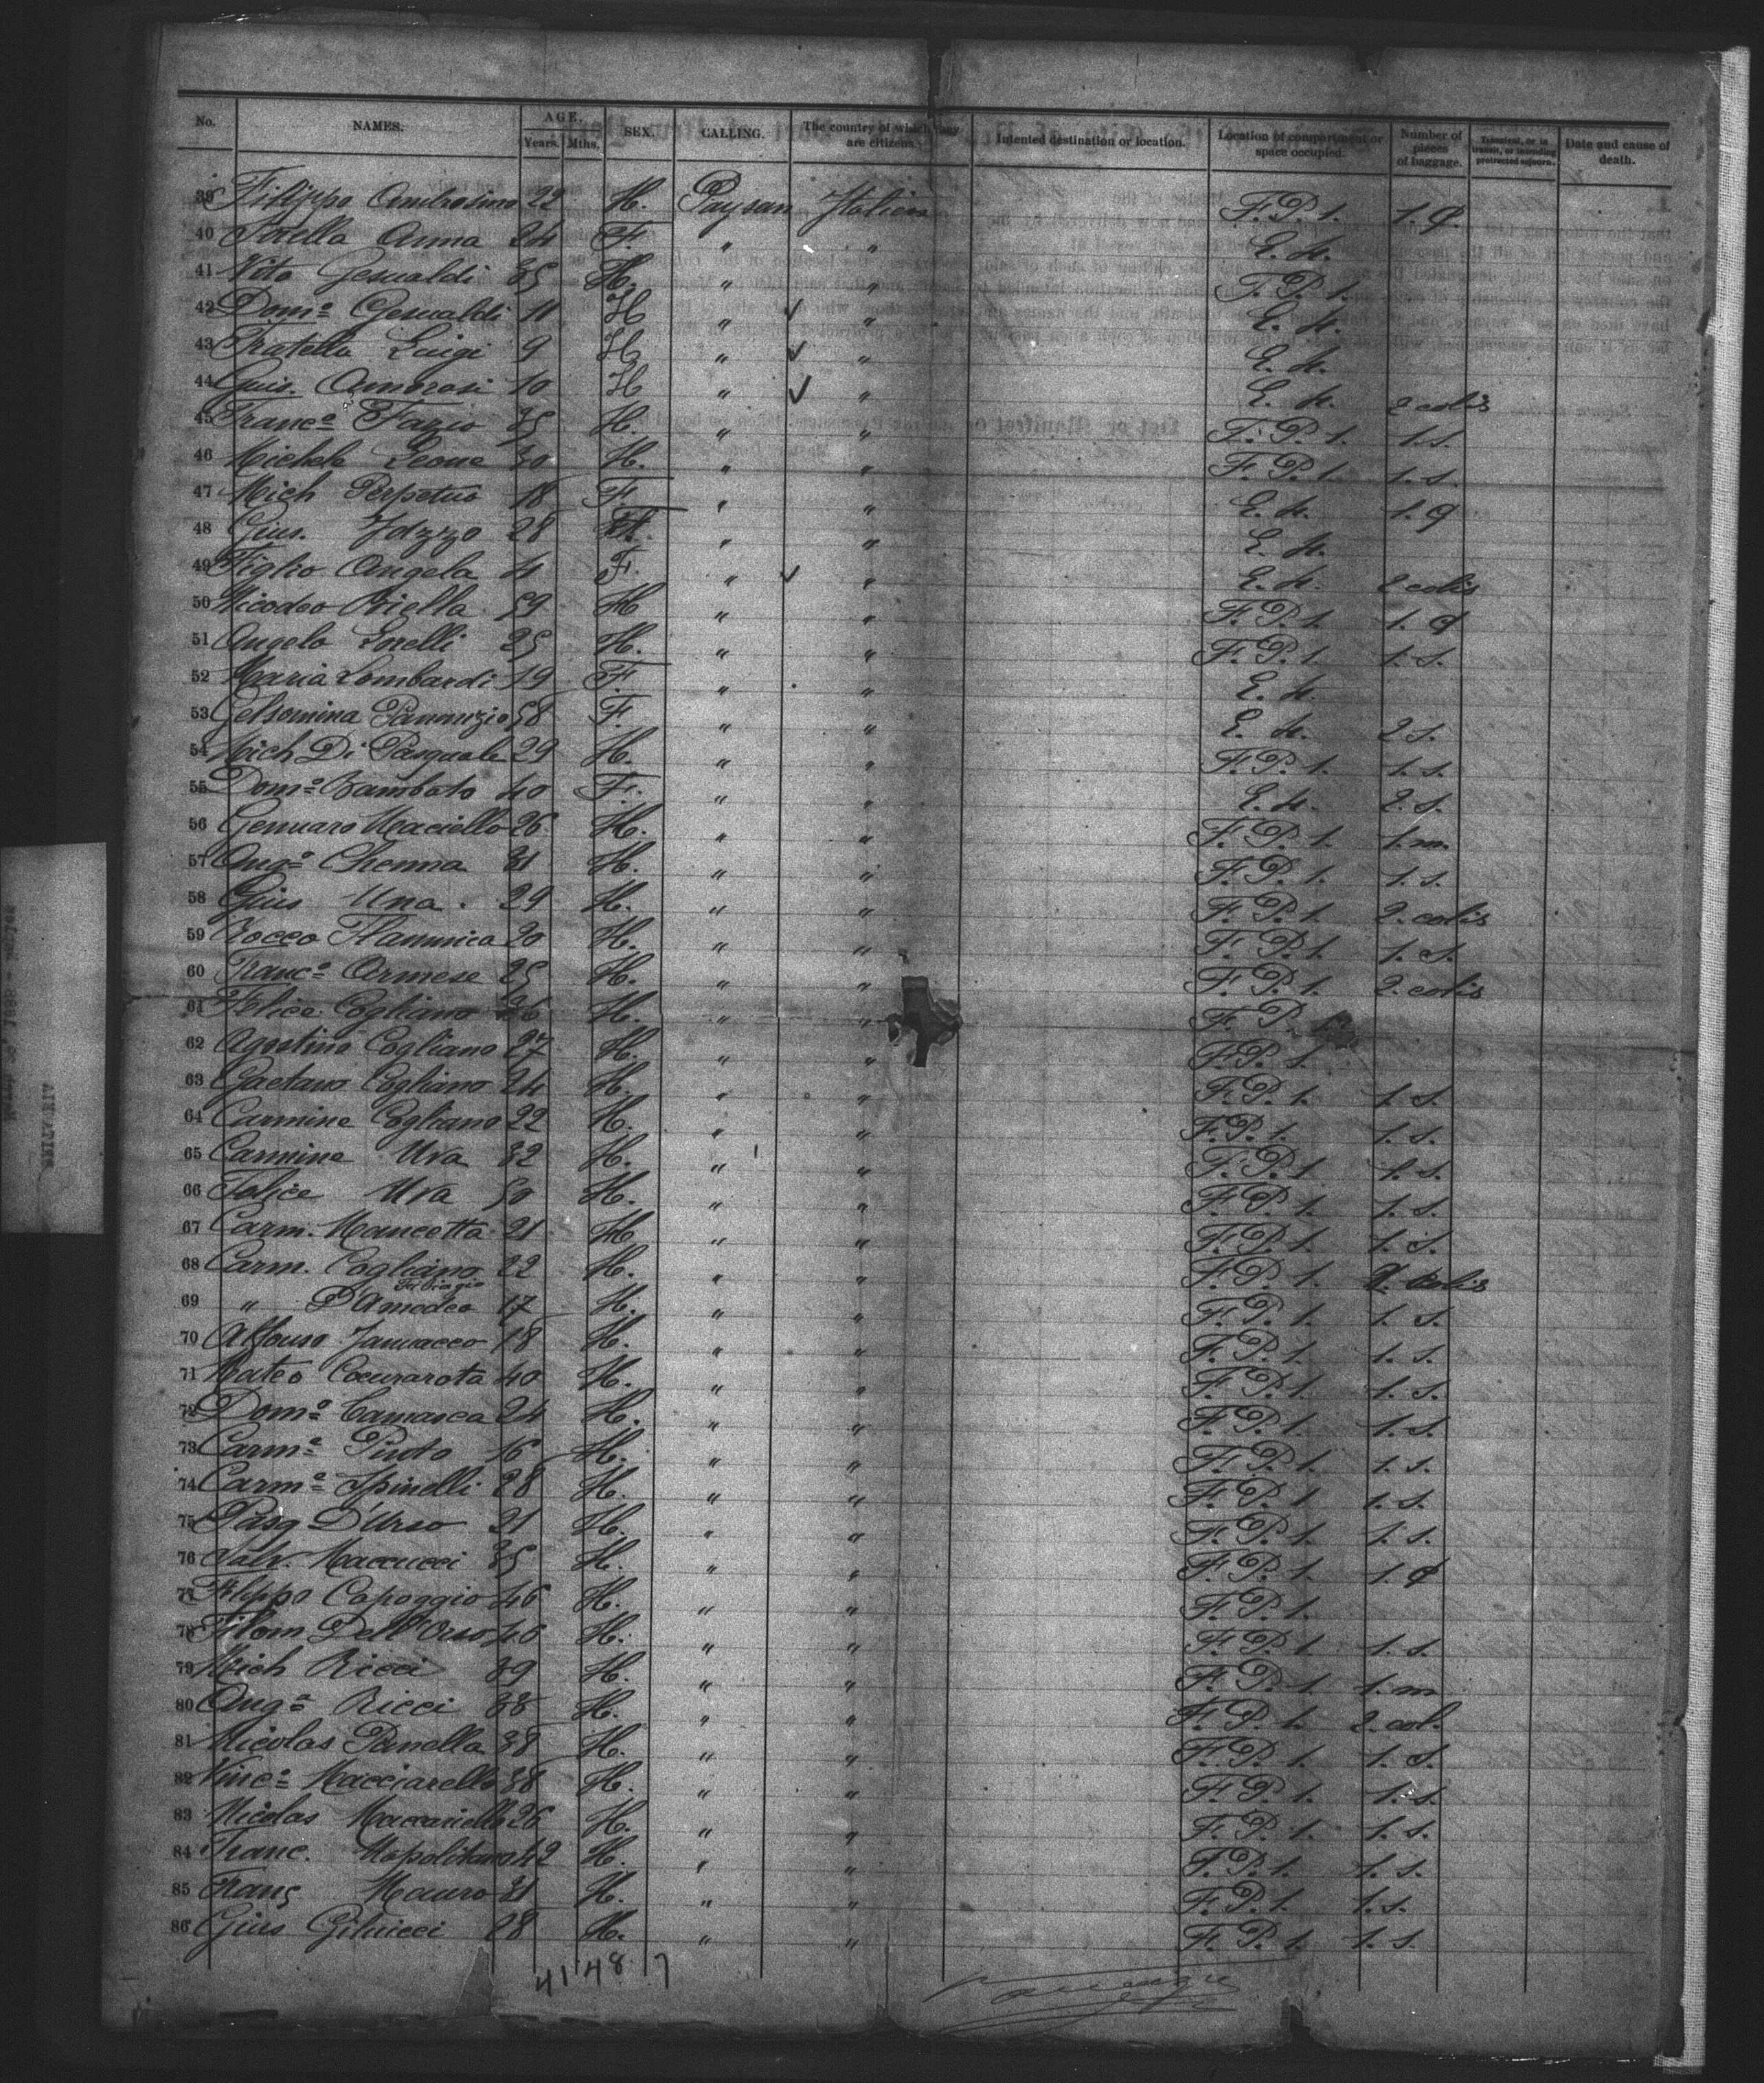 No. NAMES. AGE. Years. Mths. SEX. CALLING. The country of which they are citizens. Intented destination or location. Location of compartment or space occupied. Number of pieces of baggage. Transient, or in transit, or intending protracted sojourn. Date and cause of death.
39 Filippo Ambrosino 22 H. Paysan Italien F.P. 1. 1.
40 Sorella Anna 24 F. " " E. 4.
41 Vito Gesualdi 35 H. " " F.P. 1.
42 Domº Gesualdi 11 H " " E. 4.
43 Fratello Luigi 9 H " " E. 4.
44 Gius. Amorosi 10 H " " E. 4. 2 colis
45 Francº Fazio 35 H. " " F.P. 1. 1. s.
46 Michele Leone 30 H. " " F.P. 1. 1. s.
47 Mich Perpetuo 18 F. " " E. 4. 1.
48 Gius. 28 " " E. 4.
49 Figlio Angela 4 F. " " E. 4. 2 colis
50 Nicodeo Biella 59 H " " F.P. 1. 1.
51 Angelo Lorelli 25 H. " " F.P. 1. 1. s.
52 Maria Lombardi 19 F. " " E. 4.
53 Gelsomina Panunzio 58 F. " " E. 4. 2 s.
54 Mich Di Pasquale 29 H. " " F.P. 1. 1. s.
55 Domº Bambato 40 F. " " E. 4. 2. s.
56 Gennaro Maciello 26 H. " " F.P. 1. 1. m.
57 Angº Chenna 31 H. " " F.P. 1. 1. s.
58 Gius Una. 29 H. " " F.P. 1. 2. colis
59 Rocco Flammica 20 H. " " F.P. 1. 1. s.
60 Francº Armese 25 H. " " F.P. 1. 2. colis
61 Felice Cogliano 26 H. " " F.P.
62 Agostino Cogliano 27 H. " " F.P. 1.
63 Gaetano Cogliano 24 H. " " F.P. 1. 1. s.
64 Carmine Cogliano 22 H. " " F.P. 1. 1. s.
65 Carmine Ura 32 H. " " F.P. 1. 1. s.
66 Felice Ura 50 H. " " F.P. 1. 1. s.
67 Carm. Mancotta 21 H " " F.P. 1. 1. s.
68 Carm. Cogliano 22 H. " " F.P. 1. 2. colis
69 " D'Amodeo 17 H. " " F.P. 1. 1. s.
70 Alfonso Januacco 18 H. " " F.P. 1. 1. s.
71 Mateo Cocurarota 40 H. " " F.P. 1. 1. s.
72 Domº Camasca 24 H. " " F.P. 1. 1. s.
73 Carmº Pinto 16 H. " " F.P. 1. 1. s.
74 Carmº Spinelli 28 H. " " F.P. 1 1. s.
75 Pasq D'Urso 21 H. " " F.P. 1. 1. s.
76 Salv. Maccucci 35 H. " " F.P. 1. 1.
77 Filippo Capoggio 46 H. " " F.P. 1.
78 Filom Dell'Orso 46 H. " " F.P. 1. 1. s.
79 Mich Ricci 39 H. " " F.P. 1 1. m
80 Angº Ricci 38 H. " " F.P. 1. 2. col.
81 Nicolas Panella 38 H. " " F.P. 1. 1. s.
82 Vincº Macciarello 38 H. " " F.P. 1. 1. s.
83 Nicolas Maccariello 26 H. " " F.P. 1. 1. s.
84 Franc. Napolitano 42 H. " " F.P. 1. 1. s.
85 Franç Mauro 31 H. " " F.P. 1. 1. s.
86 Gius Gilucci 28 H. " " F.P. 1. 1. s.
41 48 7